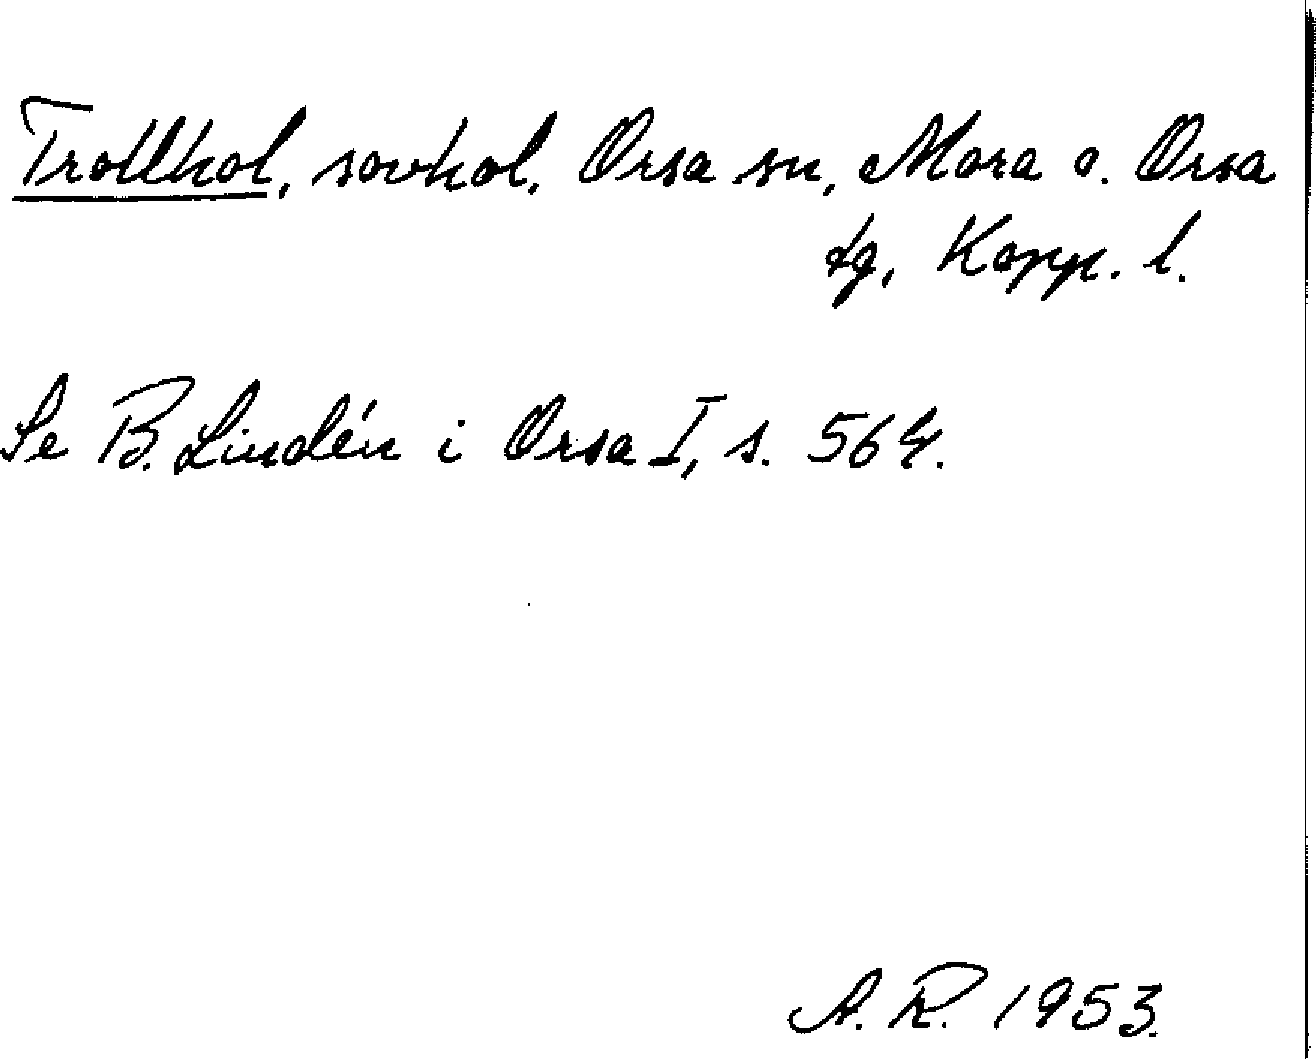 Trollhol, sovhol, Orsa sn, Mora o. Orsa
tg, Kopp. l.
Se B. Lindén i Orsa I, s. 564.
A. R. 1953.